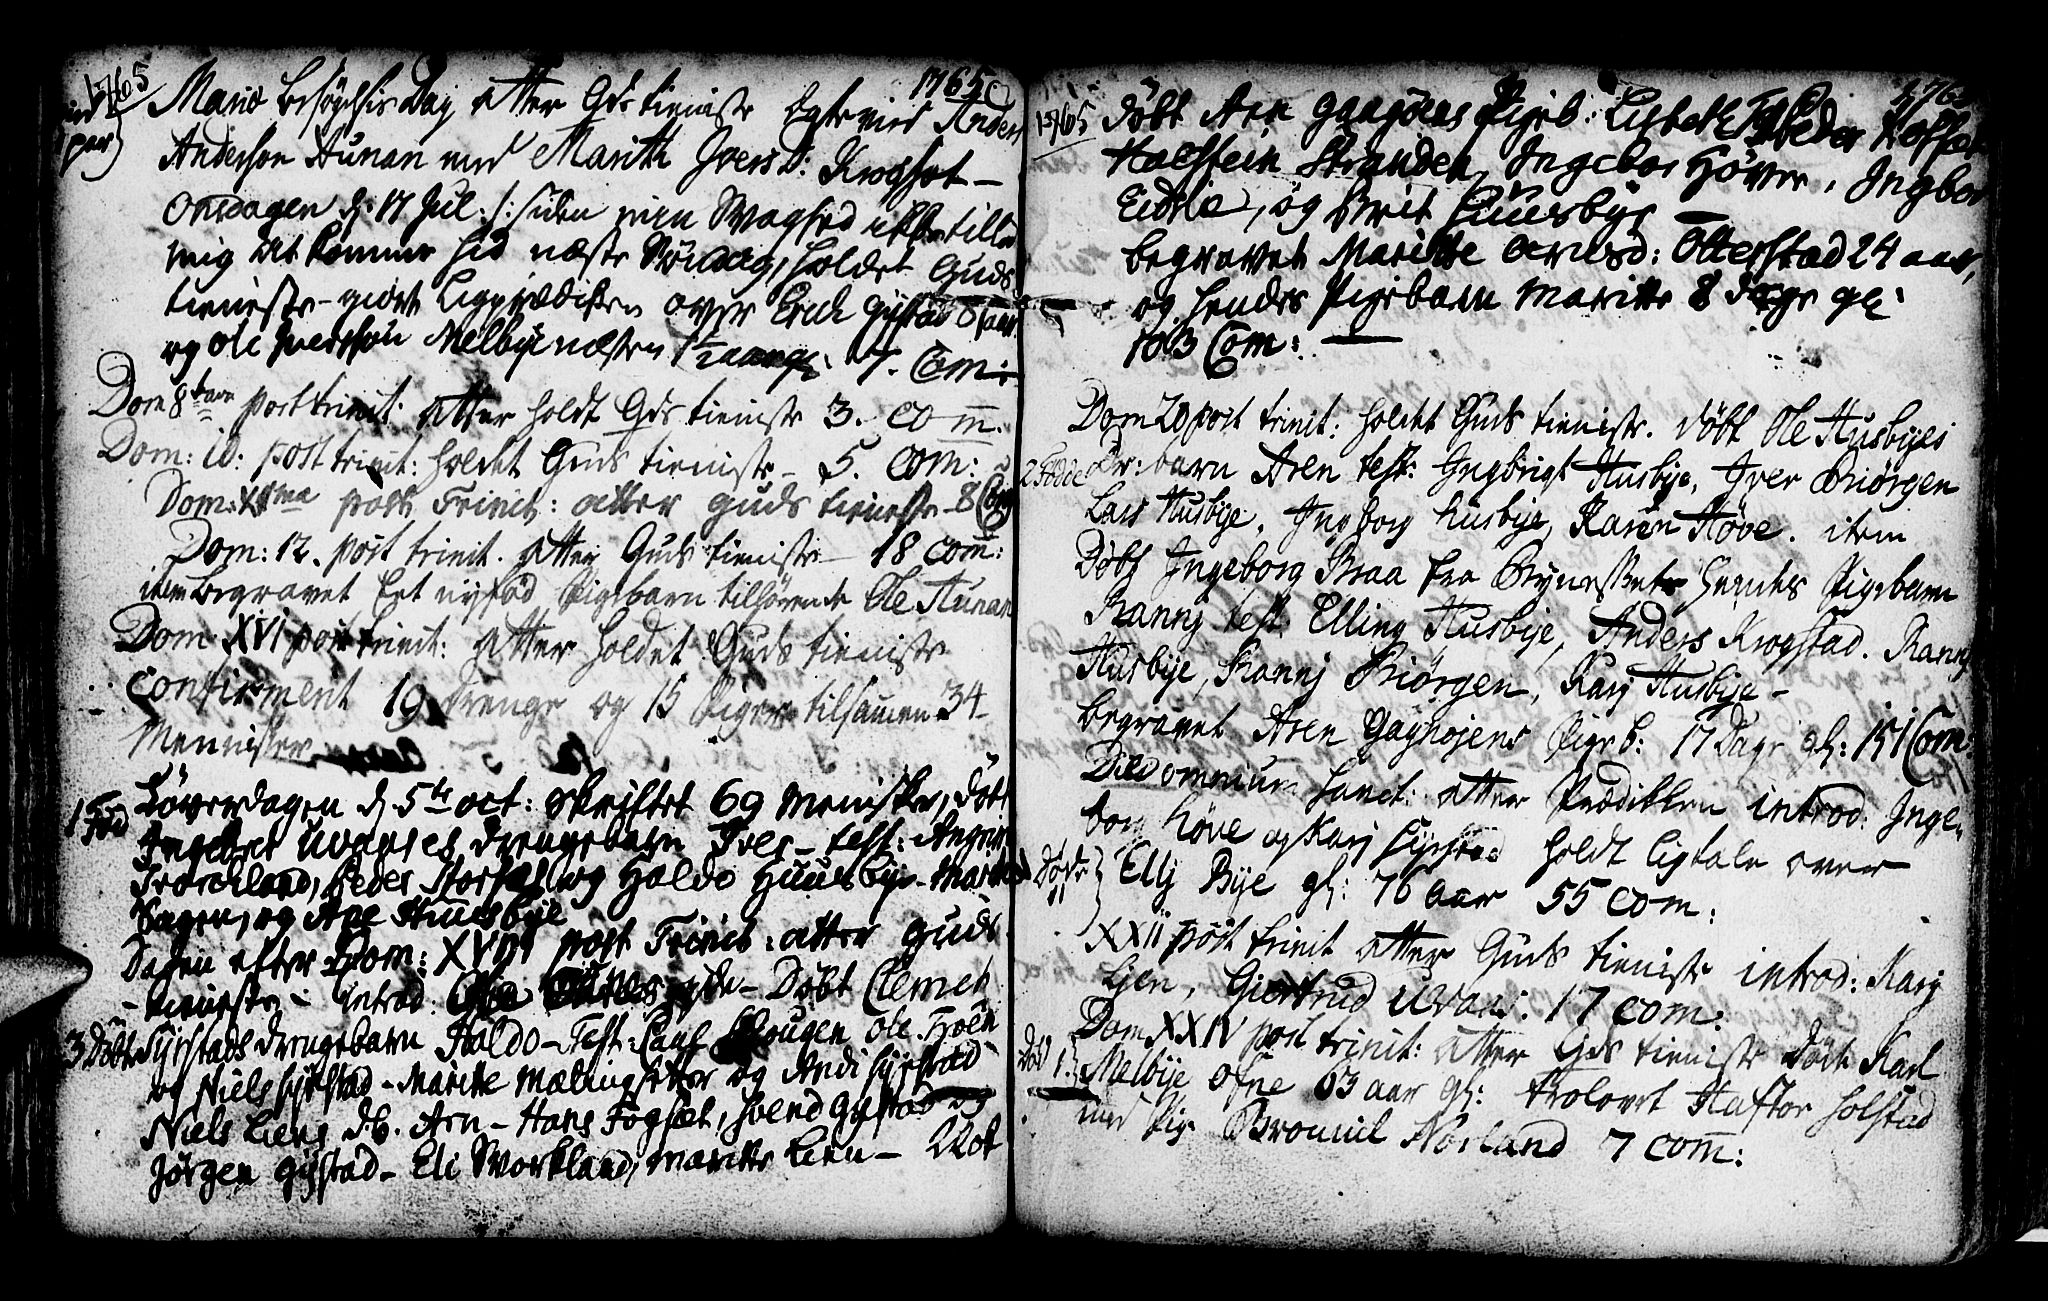 1765
1765
Mariæ besøgelsis Dag atter Gds tieniste Egteviet Anders
par
Anderson Aunan med Marith Ivers D: Krogstat –
Onsdagen d: 17 Jul. /: siden min Svaghed ikke tillod
mig at komme hid næste Søndag, holdet Guds
tieneste – giort Ligprædiken over Erich Gystad 81 aar
og Ole Iverssøn Melbye næsten 1½ aar gl: 7. Com:
Dom 8 post trinit: atter holdt Gds tieniste 3. Com.
Dom: 10. post trinit: holdet Guds tieniste – 5. Com:
Dom: post Trinit: atter guds tieneste – 8 Com
Dom: 12. post trinit. atter Guds tieniste – 18 Com:
item begravet Et nyfød Pigebarn tilhørende Ole Aunan
Dom XVI post trinit: atter holdet Guds tieniste
Confirment 19 Drenge og 15 Piger tilsamen 34
Mennisker
Løverdagen d. 5te oct: skriftet 69 Menisker, døbt
1 Fød
Ingebret Uvaases drengebarn Iver – test:
Peder Storsæt og Haldo Huusbye – Marite
Hagen, og Ane Huusbye
Dagen efter Dom: XVIII post Trinit: atter guds
tieneste – introd: Døbt Clemet
3 Døbt
Syrstads drengebarn Haldo – Test: Ole
og Niels Syrstad – Marite Mælingsetter og Andi Syrstad
Niels Liens db. Arn – Hans Fogsæt, Svend Gystad og
Jørgen Gystad – Eli Svorkland, maritte Lien – 
1765
døbt Arn Pigeb: Lisbeth Peder
Holstein Stranden, Ingebor Høver, Ingbor
Eidslie, og Brit Huusbye –
begravet Maritte Arnesd: Otterstad 24 aar,
og hendes Pigebarn Maritte 8 dage gl:
103 Com: –
Dom 20 post trinit: holdet Guds tieniste. døbt Ole Husbyes
2 Fødde
Dr: barn Aren test: Ingbrigt Husbye, Iver Biørgen
Lars Husbye, Ingborg Husbye, Karen Høve. item
Døbt Ingeborg Braa fra Bynesset hendes Pigebarn
Rannj test. Elling Husbye, Anders Krogstad. Rannj
Husbye, Rannj Biørgen, Karj Husbye –
begravet Aren Gaghøjens Pigeb: 17 Dage gl: 151 Com:
Die omnium Sanct: atter Prædiken introd: Inge-
borg Høve og Karj Syrstad holdt Ligtale over
Døde 1
Ellj Bye gl: 76 aar 55 Com:
XXII post trinit atter Guds tieniste introd: Karj
Lien, Giertrud Uvaas: 17 Com:
Dom XXIV post trinit: atter Gds tieniste
Død 1.
Melbye ofne 63 aar gl: trolovet Haftor Holstad
med Pig: Bromil Norland 7 Com: